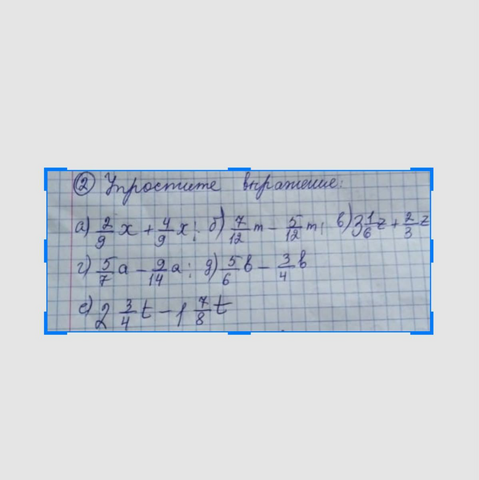 ② Упростите выражение:
а) 2/9 x + 4/9 x; б) 7/12 m - 5/12 m; в) 3 1/6 z + 2/3 z
г) 5/7 a - 9/14 a; д) 5/6 b - 3/4 b
е) 2 3/4 t - 1 7/8 t